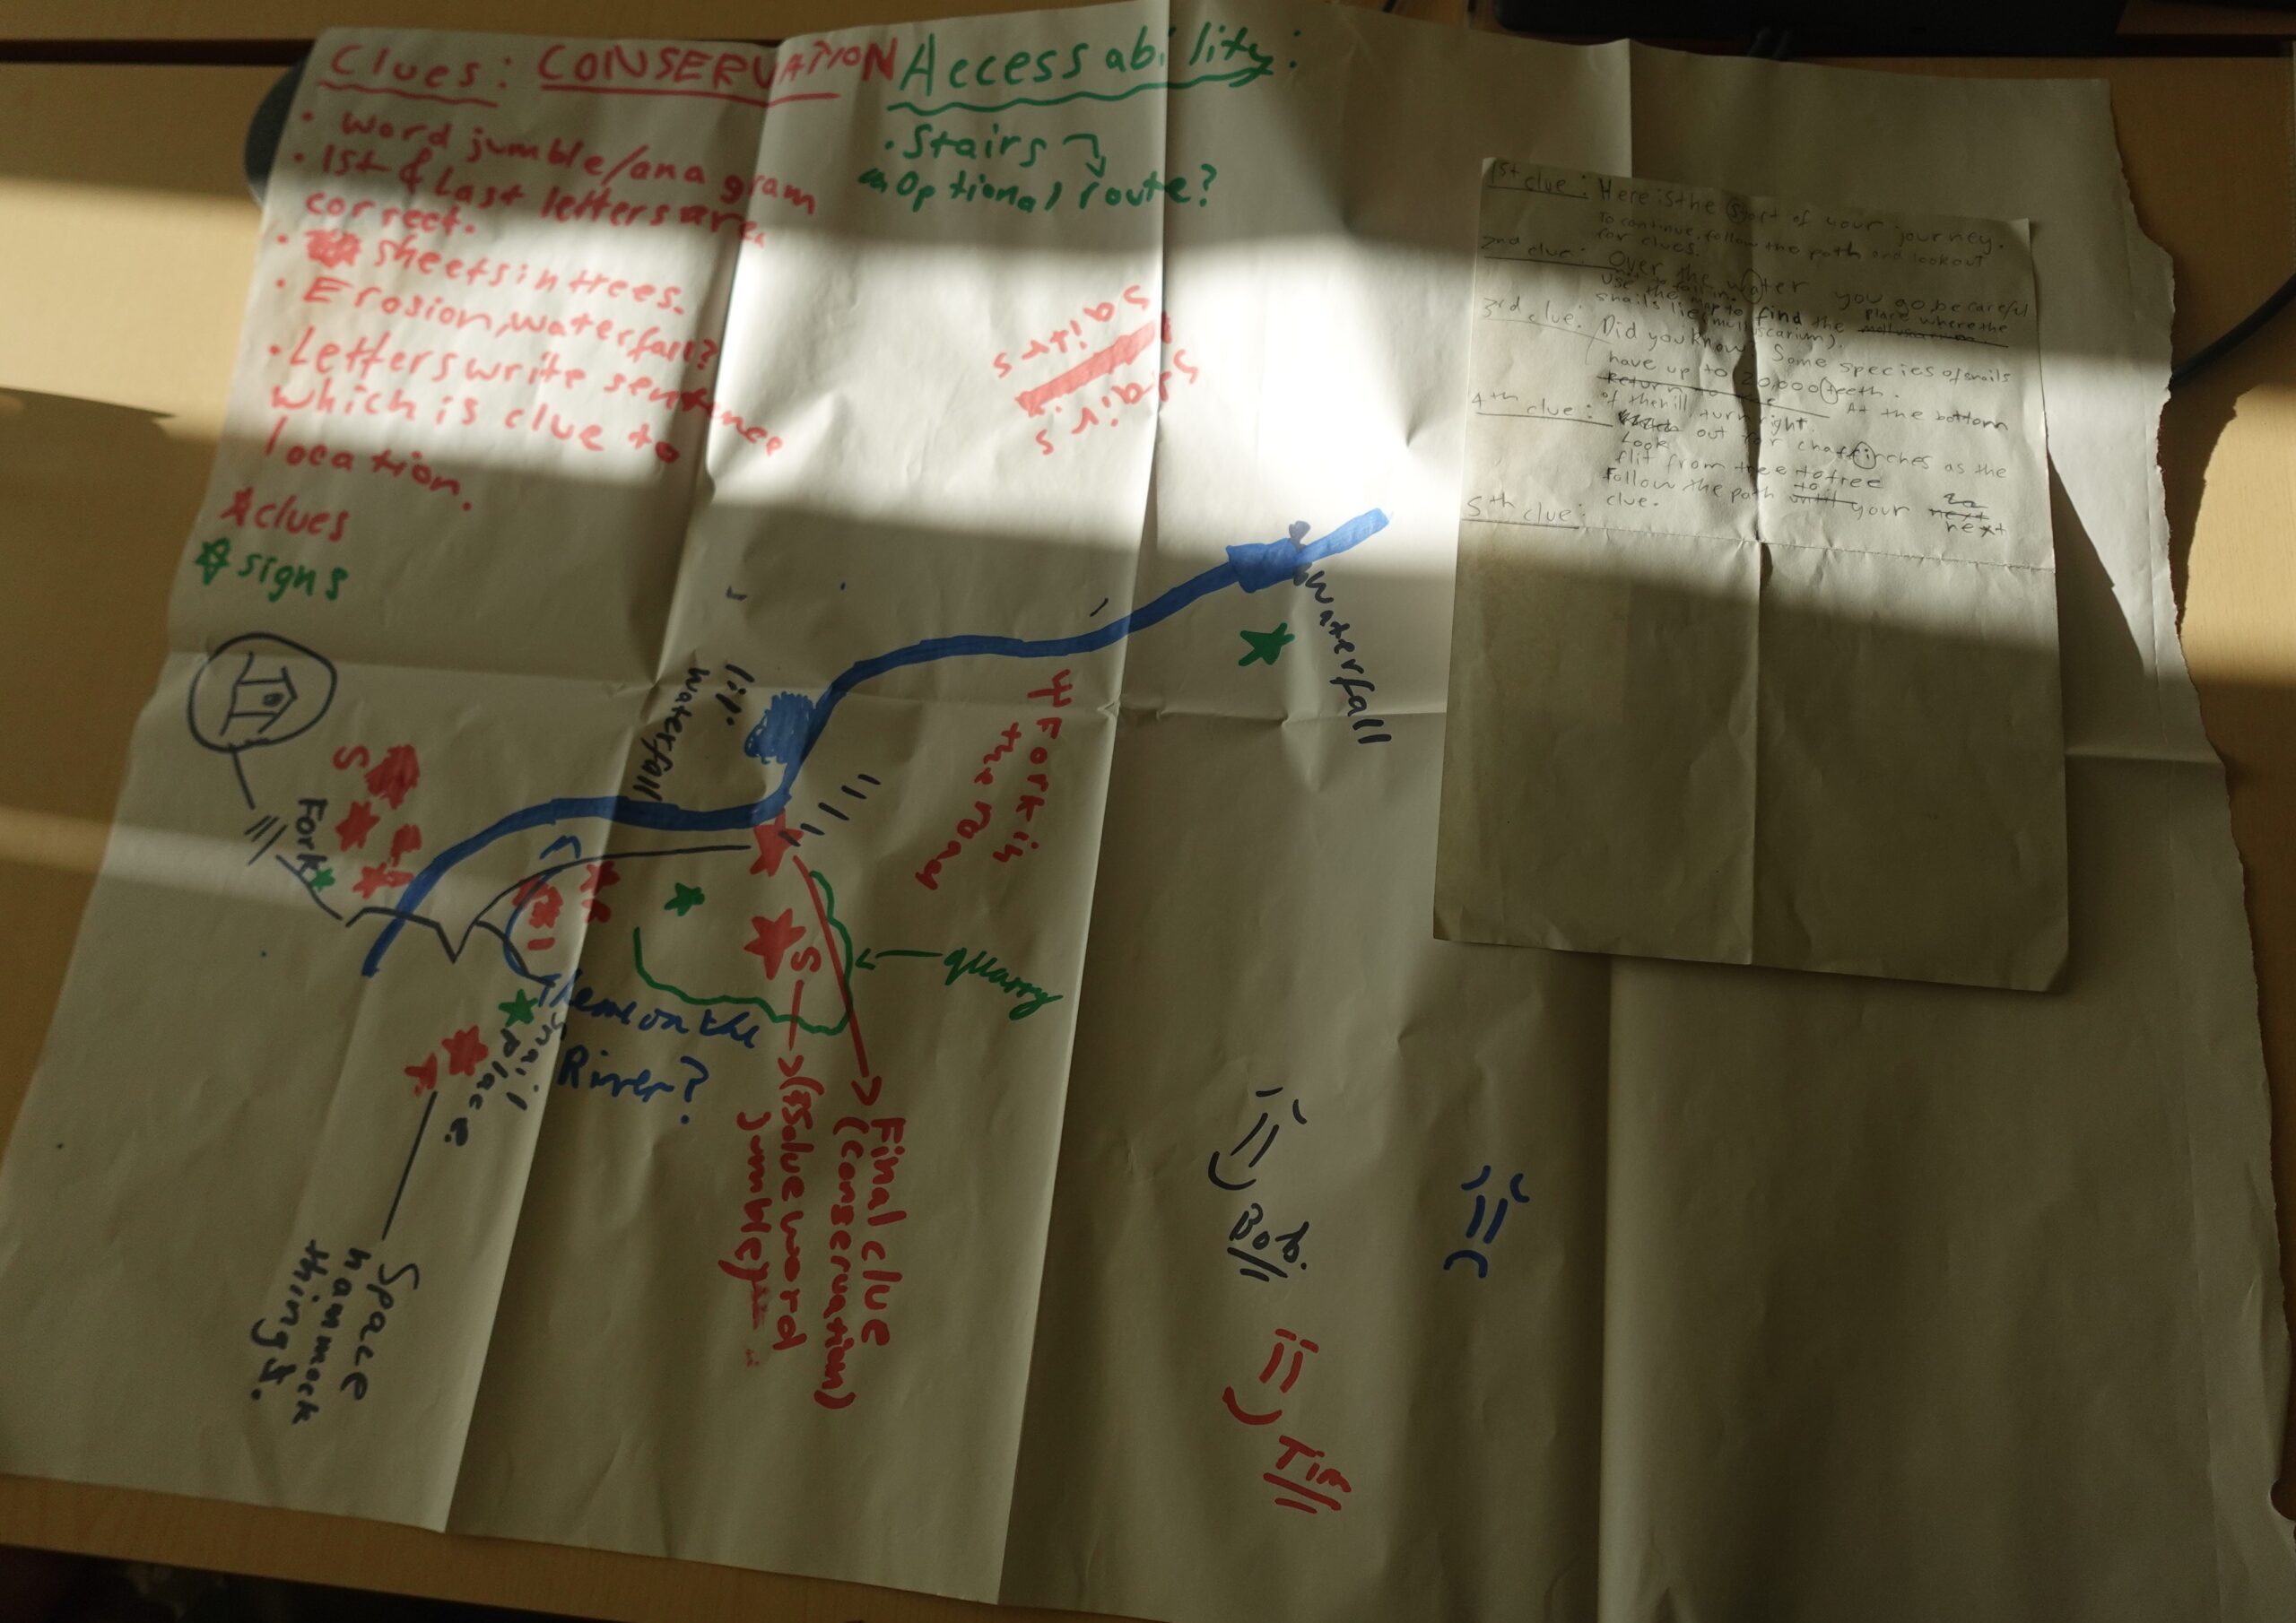 Clues: CONSERVATION
• word jumble/anagram
• 1st & Last letters are
correct.
• sheets in trees.
• Erosion, waterfall?
• Letters write sentence
which is clue to
location.
clues
signs
Accessability:
• Stairs
Optional route?
Stairs
stairs
1st clue: Here is the start of your journey.
To continue, follow the path and lookout
for clues.
2nd clue: Over the water you go, be careful
not to fall in.
use the map to find the place where the
snails lie, (molluscarium).
3rd clue: Did you know? Some species of snails
have up to 20,000 teeth.
Return to At the bottom
of the hill, turn right.
4th clue: Look out for chaffinches as the
flit from tree to tree
Follow the path to until your next next
clue.
5th clue:
Waterfall
lil.
waterfall
Fork in
the road
Fork
S
quarry
S
Theme on the
River?
Snail
place.
Space
hammock
things.
Final clue
(conservation)
(Solve word
jumble)
Bob.
Tim